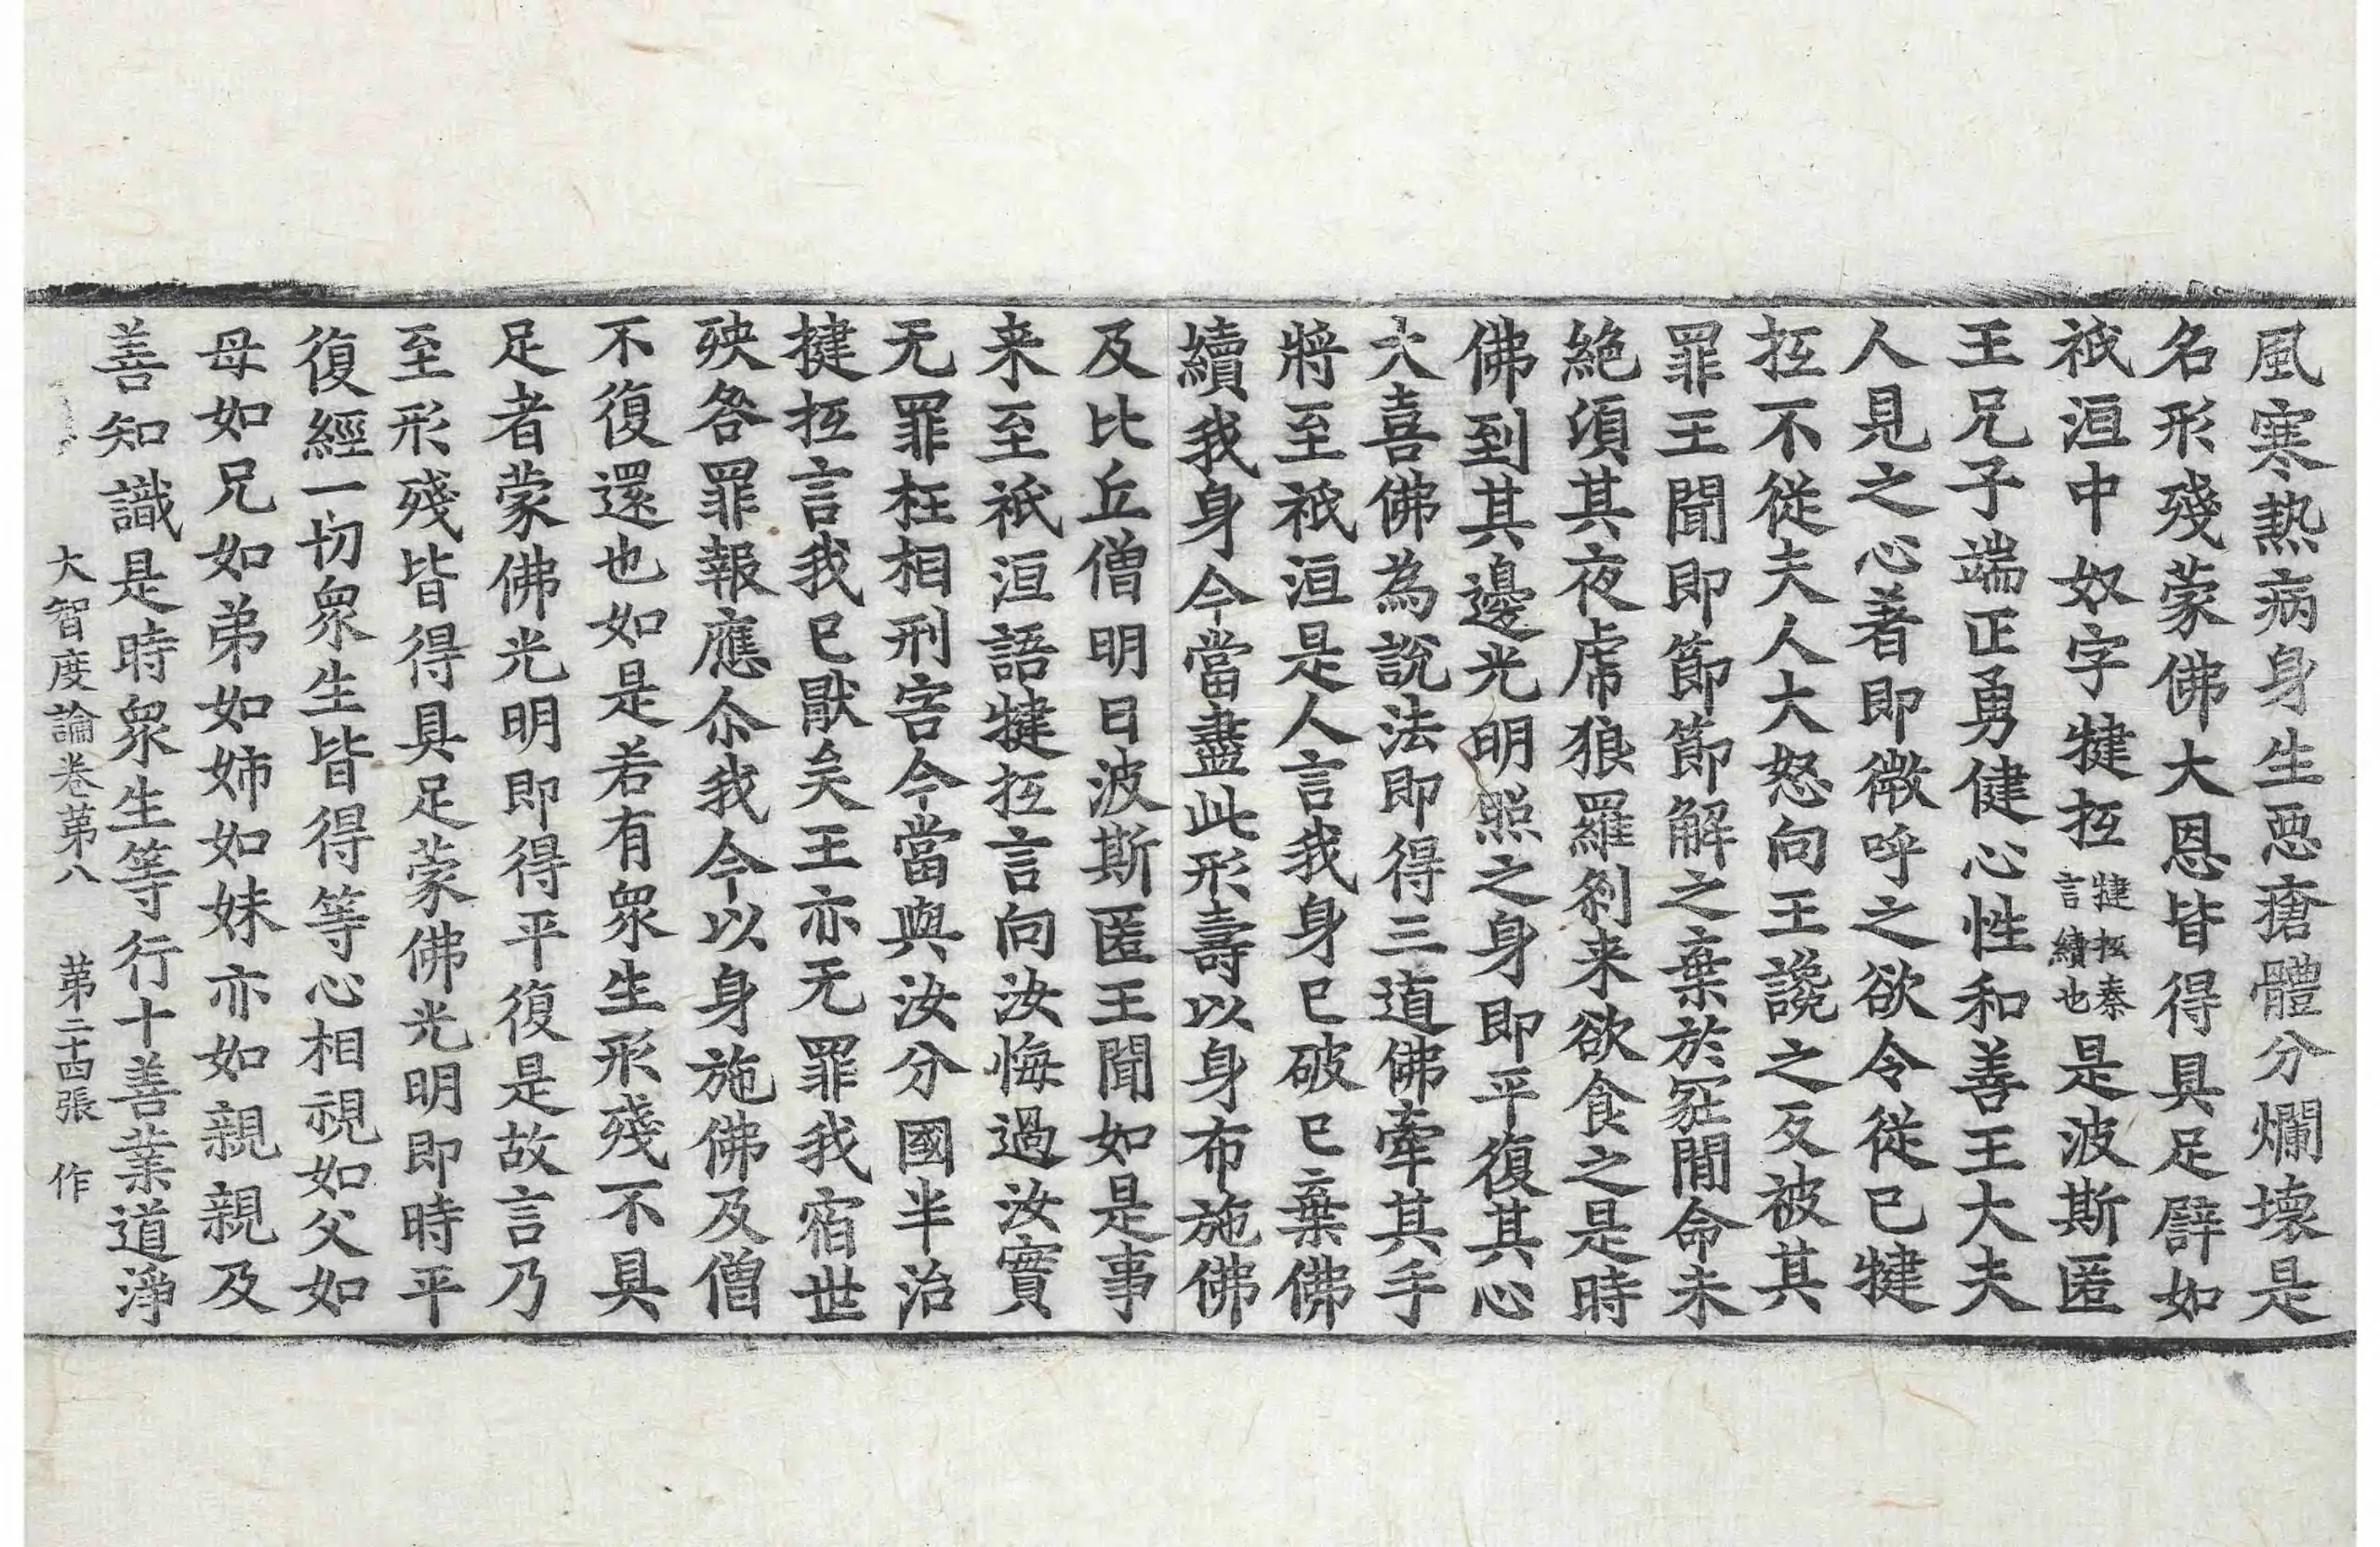 風寒熱病身生惡瘡體分爛壞是
名形殘蒙佛大恩皆得具足譬如
祇洹中奴字犍抂犍抂秦言續也是波斯匿
王兄子端正勇健心性和善王大夫
人見之心著即微呼之欲令從已犍
抂不從夫人大怒向王讒之反被其
罪王聞即節節解之棄於冢間命未
絕湏其夜虎狼羅剎来欲食之是時
佛到其邊光明照之身即平復其心
大喜佛為說法即得三道佛牽其手
將至祇洹是人言我身已破已棄佛
續我身今當盡此形壽以身布施佛
及比丘僧明日波斯匿王聞如是事
来至祇洹語犍抂言向汝悔過汝實
无罪枉相刑害今當與汝分國半治
揵抂言我已猒矣王亦无罪我宿世
殃咎罪報應尒我今以身施佛及僧
不復還也如是若有衆生形殘不具
足者蒙佛光明即得平復是故言乃
至形殘皆得具足蒙佛光明即時平
復經一切衆生皆得等心相視如父如
母如兄如弟如姉如妹亦如親親及
善知識是時衆生等行十善業道淨
大智度論卷苐八　苐二十四張　作